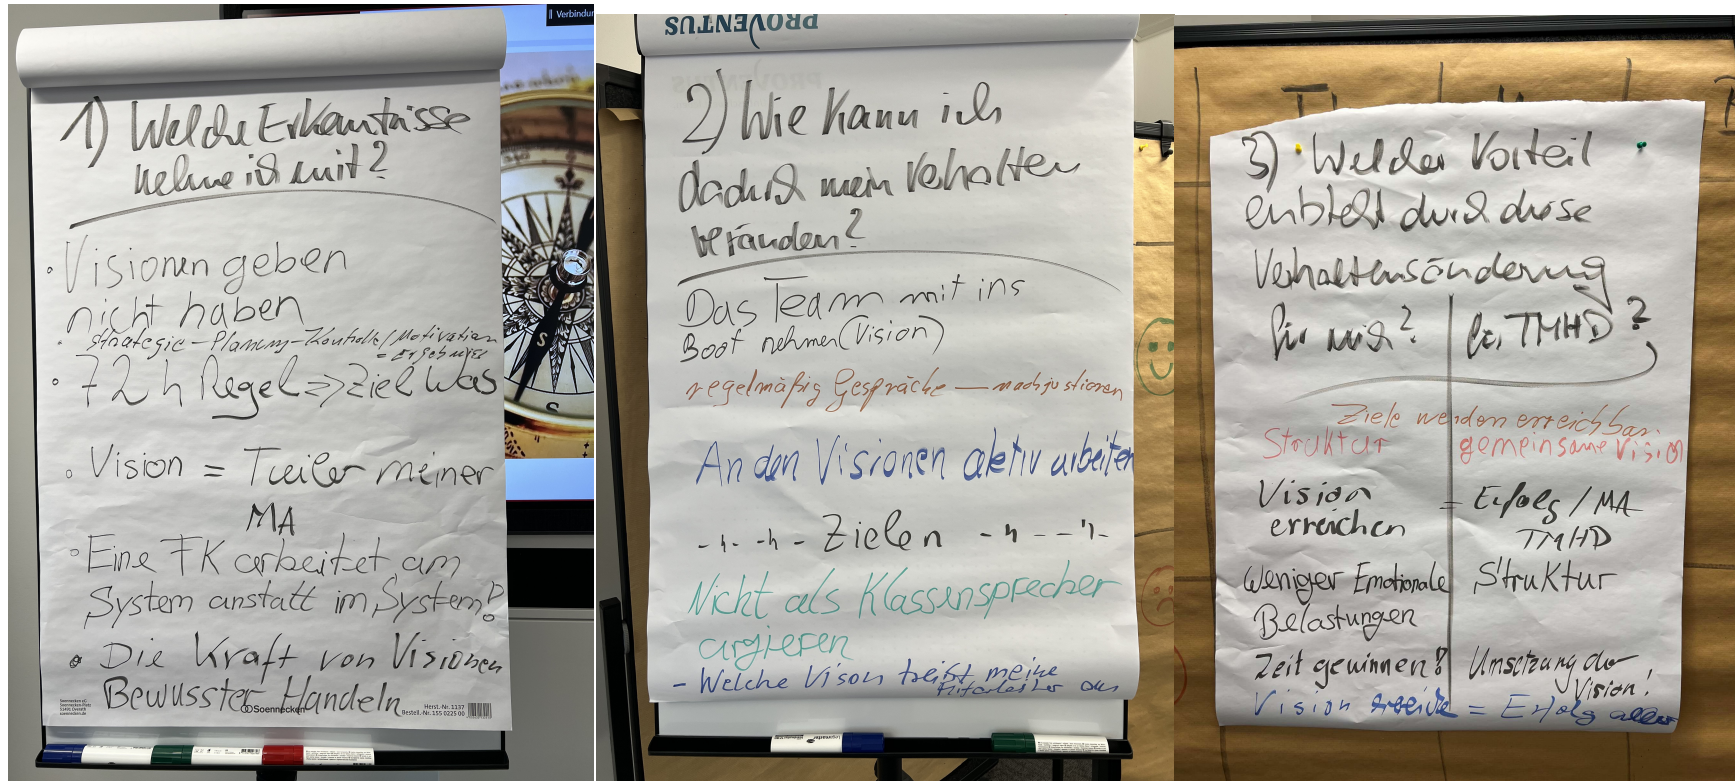 Verbindun
1) Welche Erkenntnisse
nehme ich mit?
Visionen geben
nicht haben
Strategie – Planung – Kontrolle / Motivation
= Ergebnisse
72 h Regel => Ziel Was
Vision = Treiber meiner
MA
Eine FK arbeitet am
System anstatt im System!
Die Kraft von Visionen
Bewusster Handeln
Soennecken
Herst.-Nr. 1137
Bestell.-Nr. 155 0225 00
S
S
PROVENTUS
2) Wie kann ich
dadurch mein Verhalten
verändern?
Das Team mit ins
Boot nehmen (Vision)
regelmäßig Gespräche — nachjustieren
An den Visionen aktiv arbeiten
-"- -"- Zielen -"- -"-
Nicht als Klassensprecher
agieren
- Welche Vison treibt meine
Mitarbeiter an
3) Welcher Vorteil
entsteht durch diese
Verhaltensänderung
für mich? für TMHD?
Ziele werden erreichbar.
Struktur gemeinsame Vision
Vision = Erfolg / MA
erreichen TMHD
Weniger Emotionale Struktur
Belastungen
Zeit gewinnen! Umsetzung der
Vision!
Vision = Erfolg aller